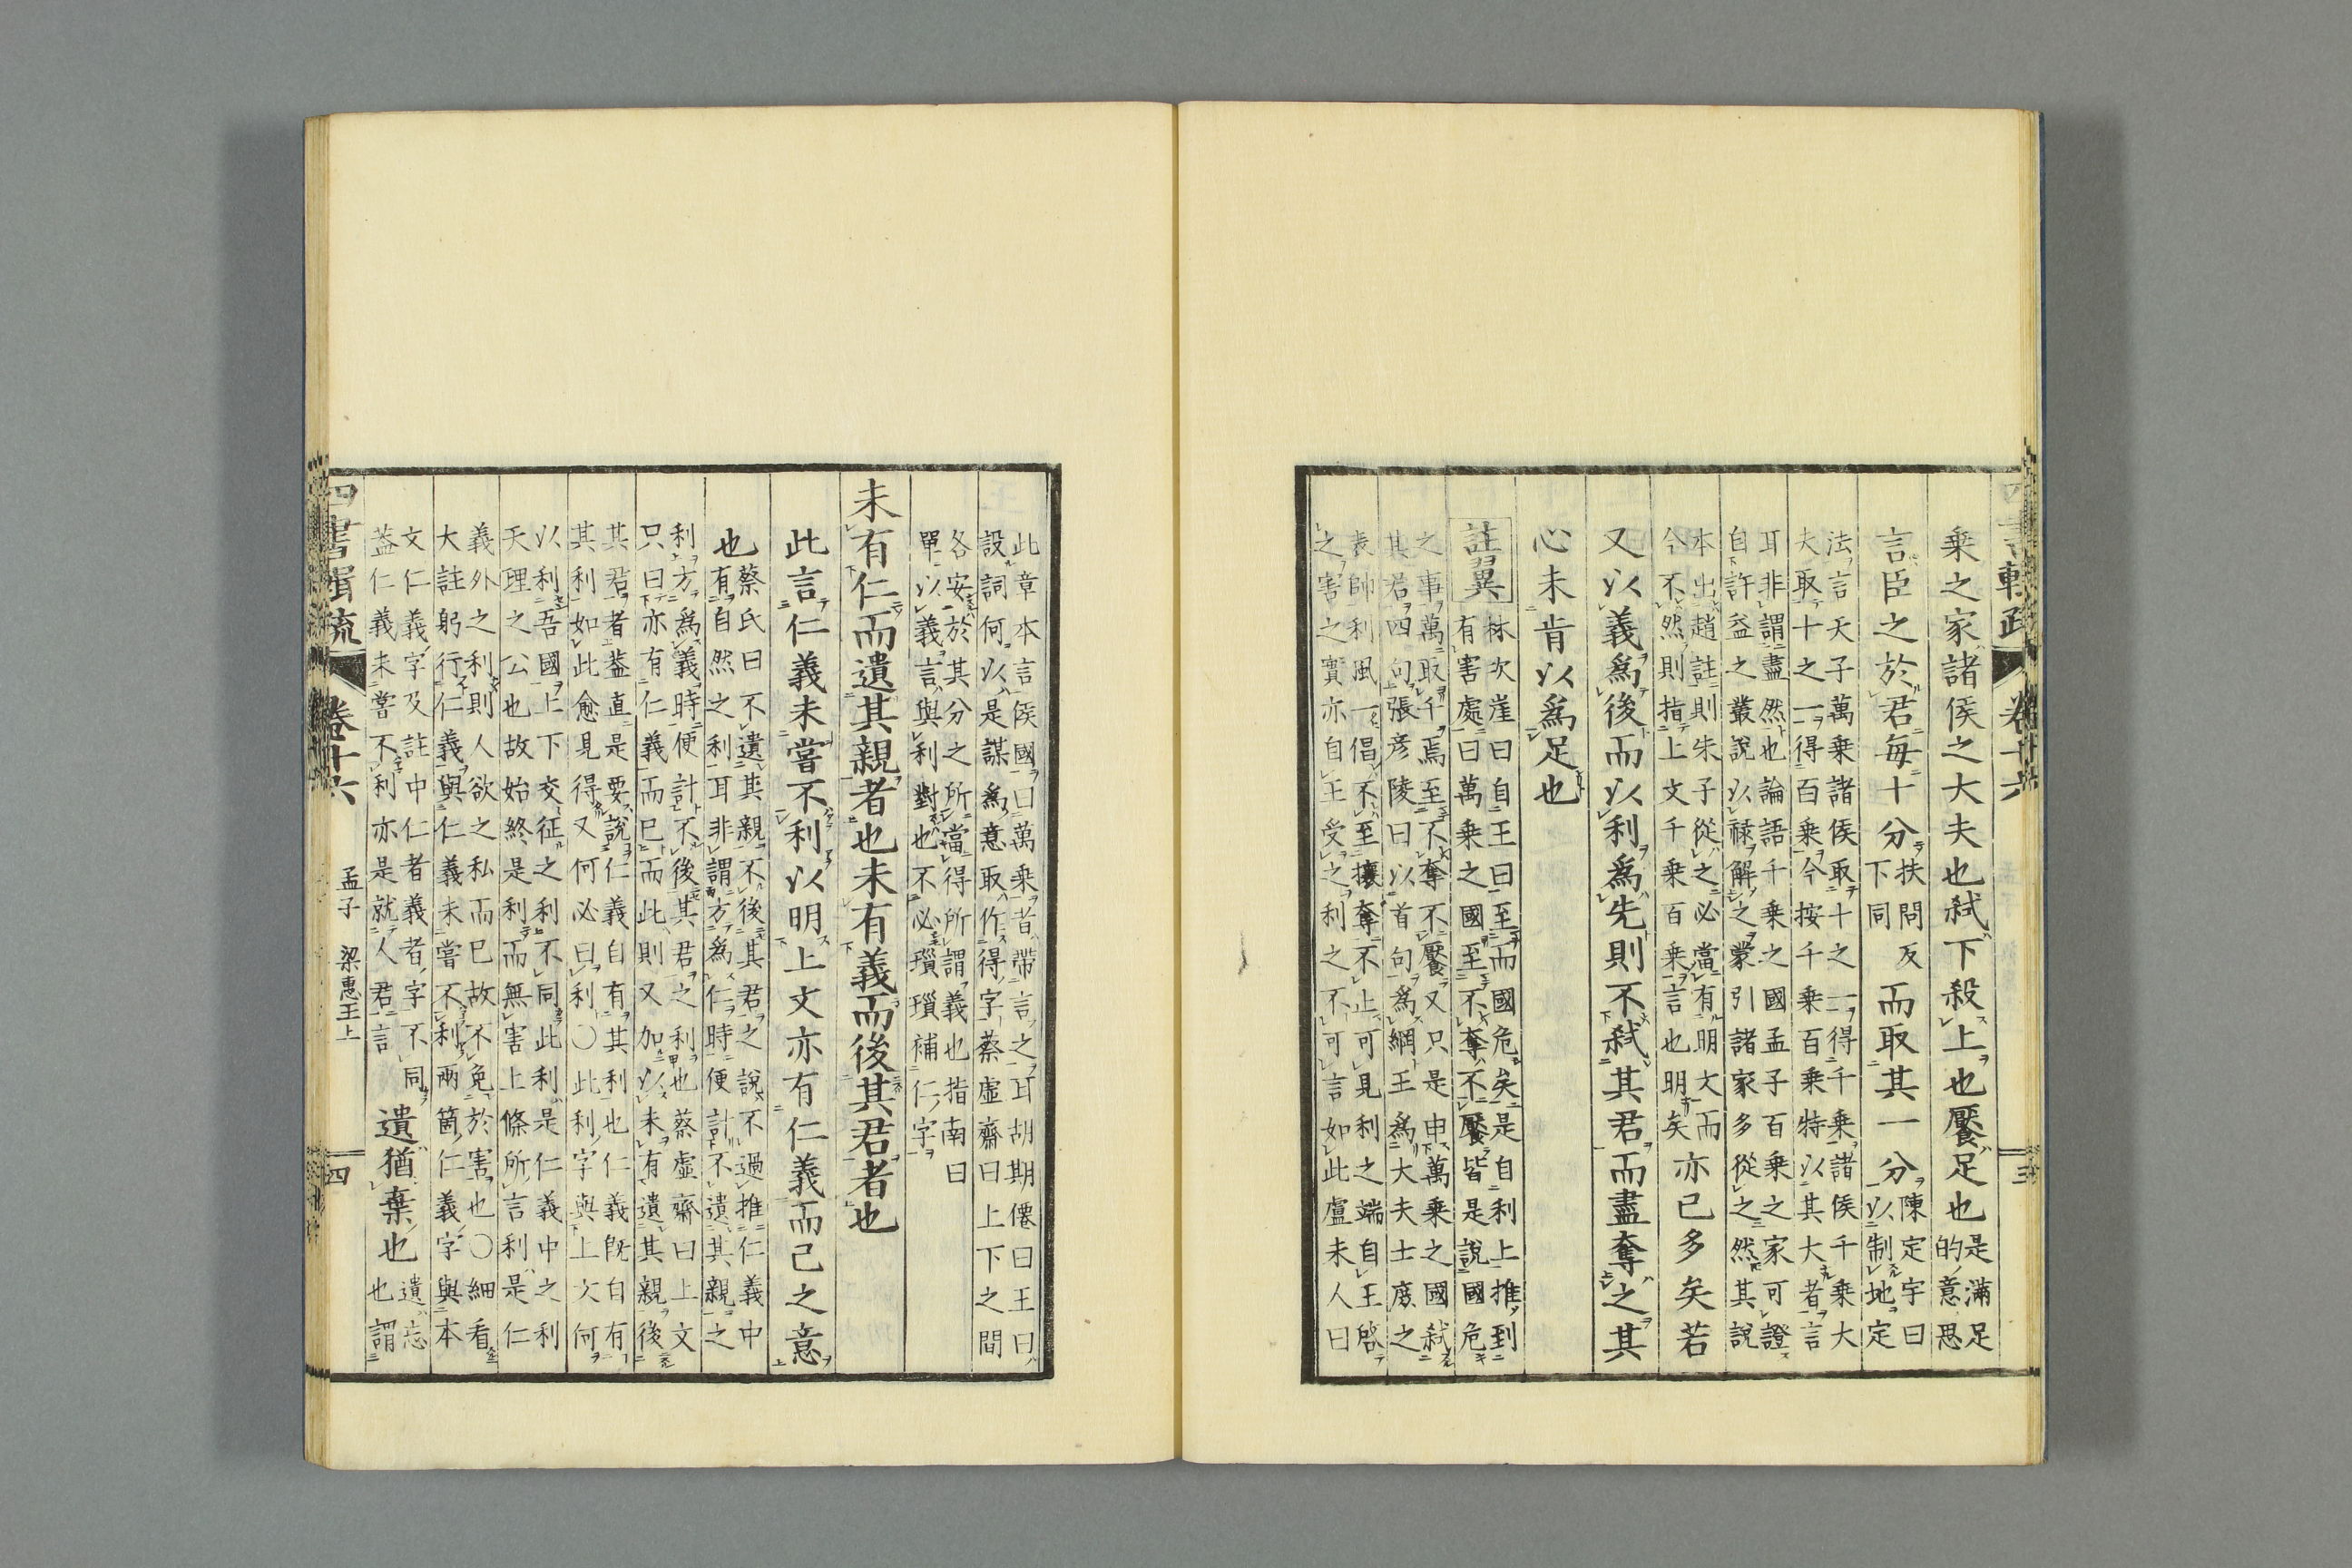 乗之家諸侯之大夫也弑下殺上也饜足也是滿足
的意思
言臣之於君毎十分扶問反
下同而取其一分陳定宇曰
以制地定
法言天子萬乗諸侯取十之一得千乗諸侯千乗大
夫取十之一得百乗今按千乗百乗特以其大者言
耳非謂盡然也論語千乗之國孟子百乗之家可證
自許益之叢說以禄解之蒙引諸家多從之然其說
本出趙註則朱子從之必當有明文而
今不然則指上文千乗百乗言也明矣亦已多矣若
又以義爲後而以利爲先則不弑其君而盡奪之其
心未肯以爲足也
註翼林次崖曰自王曰至而國危矣是自利上推到
有害處曰萬乗之國至不奪不饜皆是說國危
之事萬取千焉至不奪不饜又只是申萬乗之國弑
其君四句張彦陵曰以首句爲綱王爲大夫士庶之
表帥利風一倡不至攘奪不止可見利之端自王啓
之害之實亦自王受之利之不可言如此盧未人曰
四書輯疏 卷十六 三
此章本言侯國曰萬乗者帶言之耳胡期僊曰王曰
設詞何以是謀爲意取作得字蔡虚齋曰上下之間
各安於其分之所當得所謂義也指南曰
單以義言與利對也不必瑣瑣補仁字
未有仁而遺其親者也未有義而後其君者也
此言仁義未嘗不利以明上文亦有仁義而已之意
也蔡氏曰不遺其親不後其君之說不過推仁義中
有自然之利耳非謂方爲仁時便計不遺其親之
利方爲義時便計不後其君之利也蔡虚齋曰上文
只曰亦有仁義而已而此則又加以未有遺其親後
其君者葢直是要說仁義自有其利也仁義既自有
其利如此愈見得又何必曰利〇此利字與上文何
以利吾國上下交征之利不同此利是仁義中之利
天理之公也故始終是利而無害上條所言利是仁
義外之利則人欲之私而已故不免於害也〇細看
大註躬行仁義與仁義未嘗不利兩箇仁義字與本
文仁義字及註中仁者義者字不同
葢仁義未嘗不利亦是就人君言遺猶棄也遺忘
也謂
四書輯疏 卷十六 孟子 梁惠王上 四